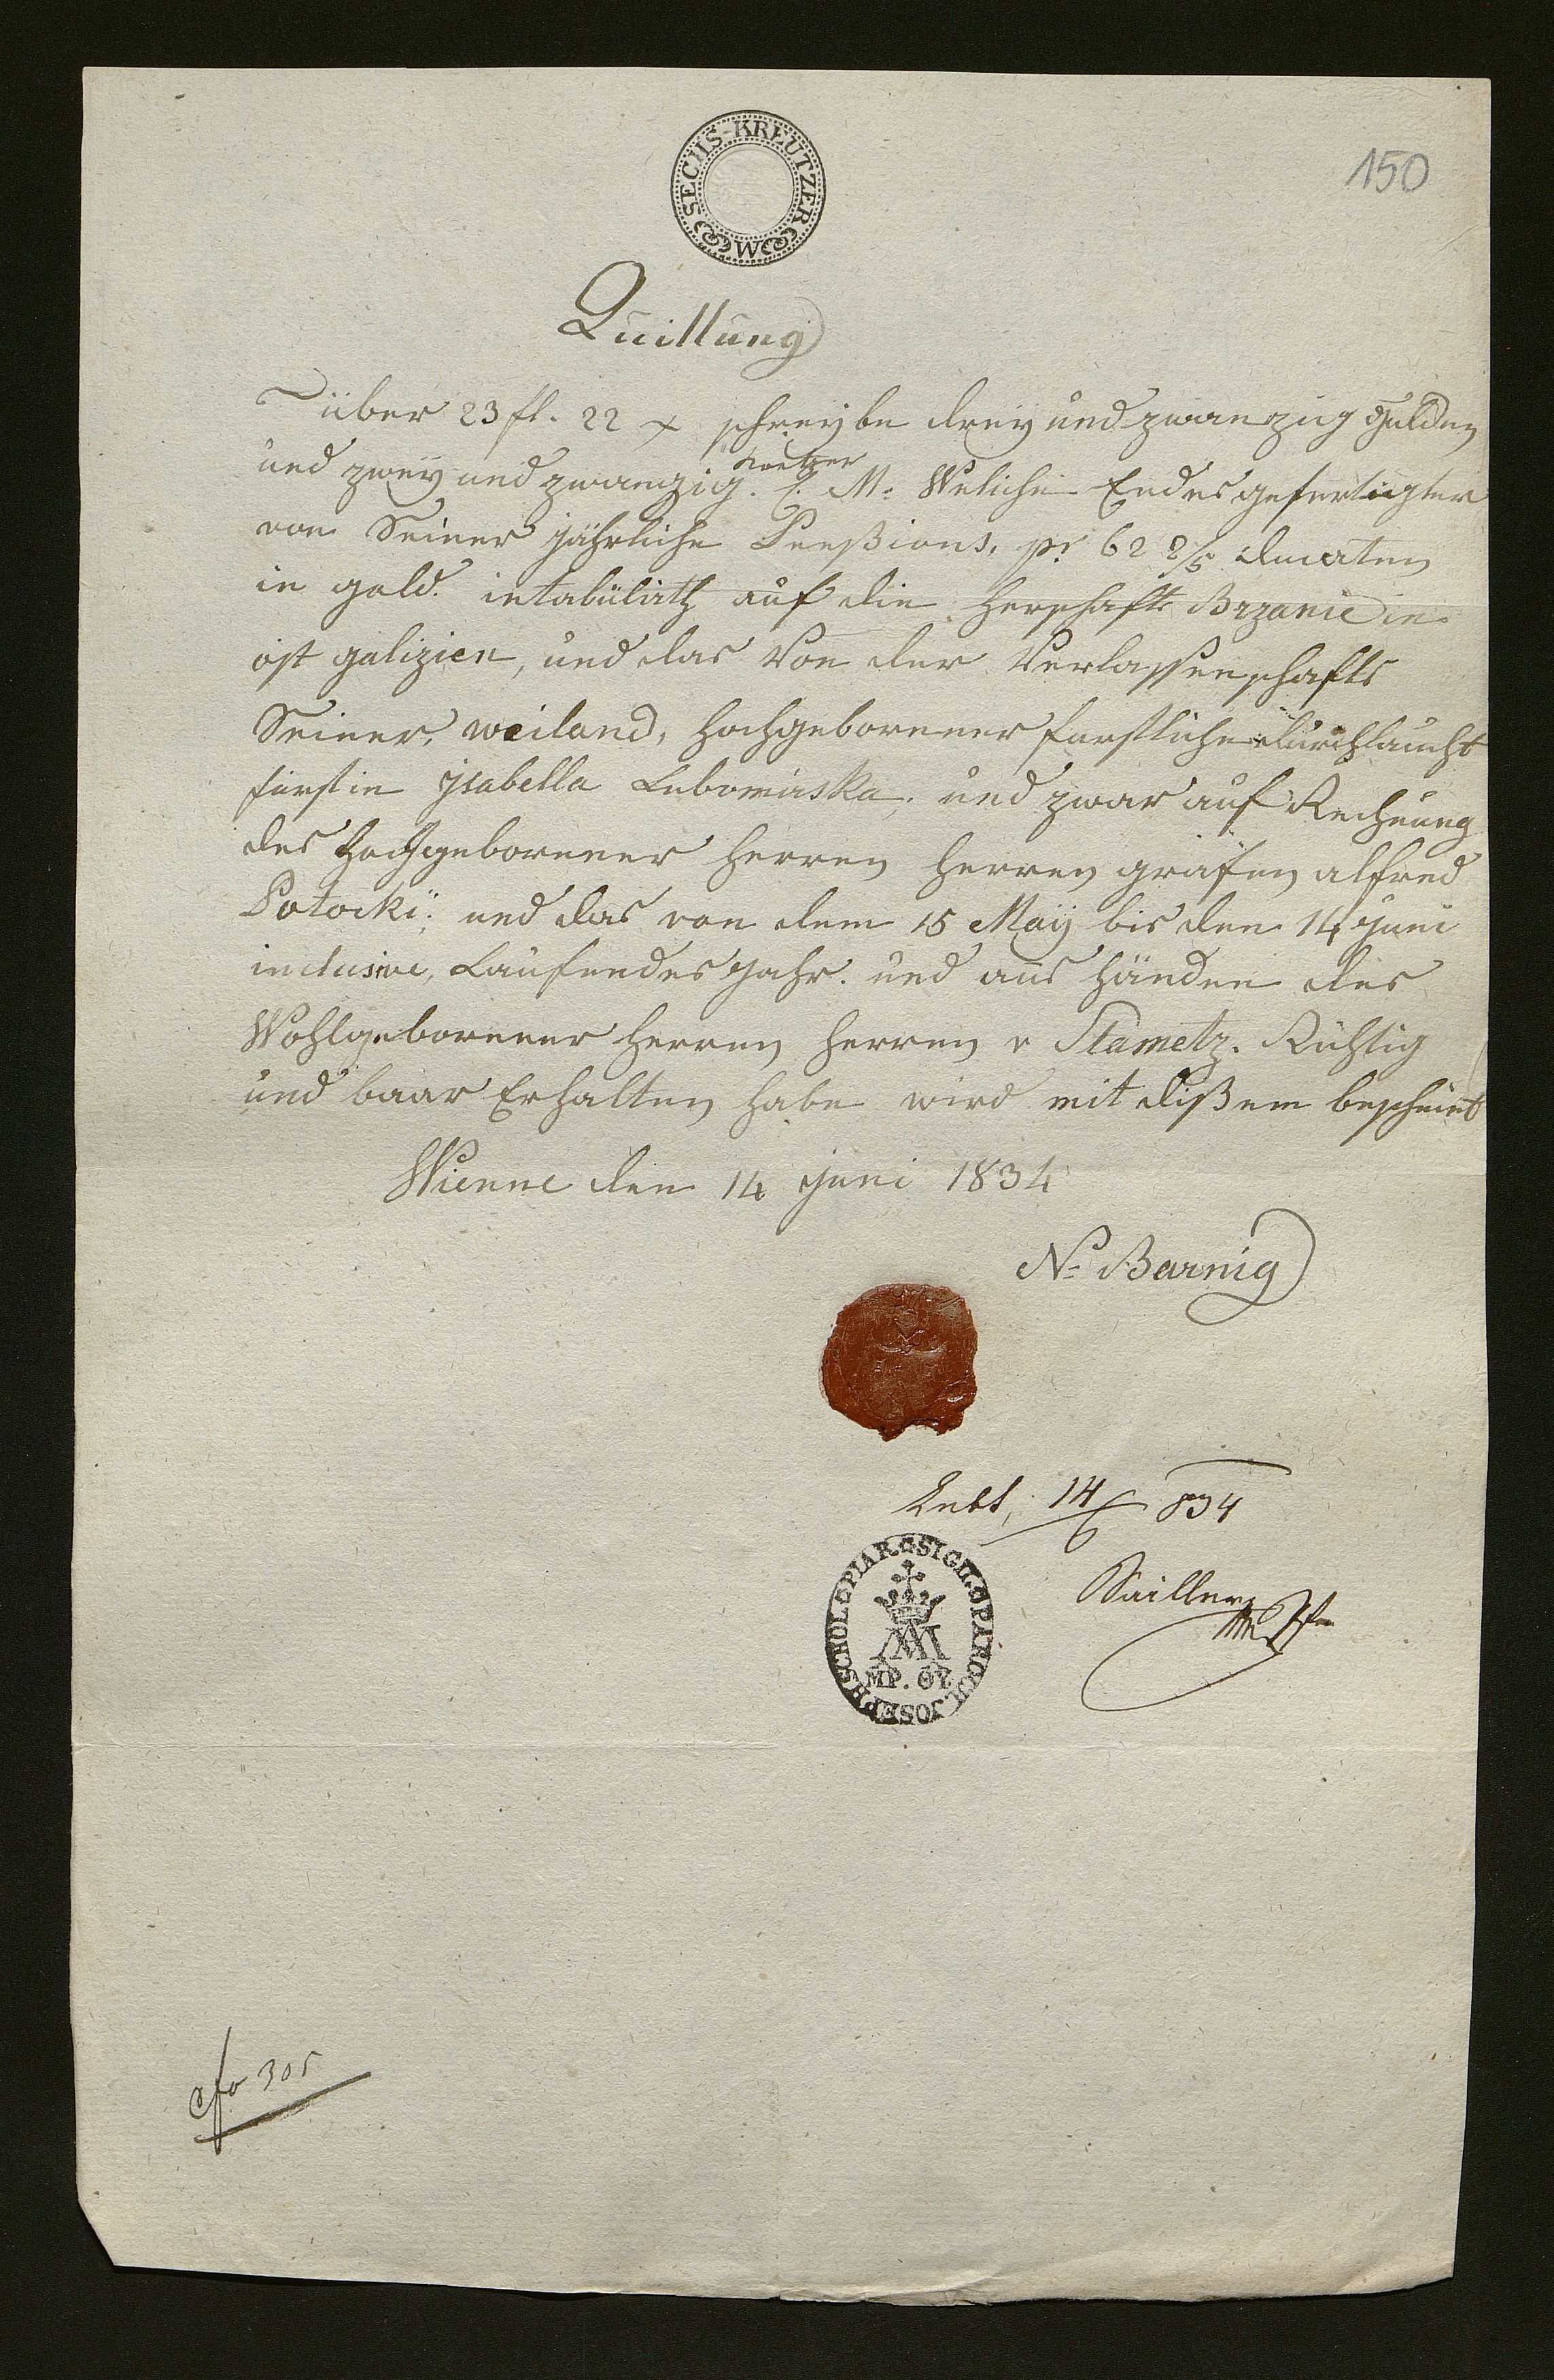 SECHS-KREUTZER W
150
Quittung
über 23 fl. 22 x schreybe drey und zwanzig Gulden
und zwey und zwanzig Kreitzer C. M: Weliche Endesgefertigter
von Seiner jährliche Penßions, pr 62 2/5 ducaten
in gold. intabulirth auf die Herschafts Brzanie in
ost galizien, und das von der Verlassenschafts
Seiner, weiland, hochgeborener furstliche durchlaucht
fürstin Jsabella Lubomirska, und zwar auf Rechnung
des hochgeborener Herren Herren grafen alfred
Potocki: und das von dem 15 May bis den 14 Juni
inclusive, Laufendes Jahr. und aus Händen des
Wohlgeborener Herren Herren v Stametz. Richtig
und baar Erhalten habe wird mit dißem bescheint
Wienne den 14 Juni 1834
N= Barnig
Lebt, 14/6 834
SIGIL. PAROCH. JOSEPH SCHOL PIAR
MP. ΘΥ
Sailler
fo 305